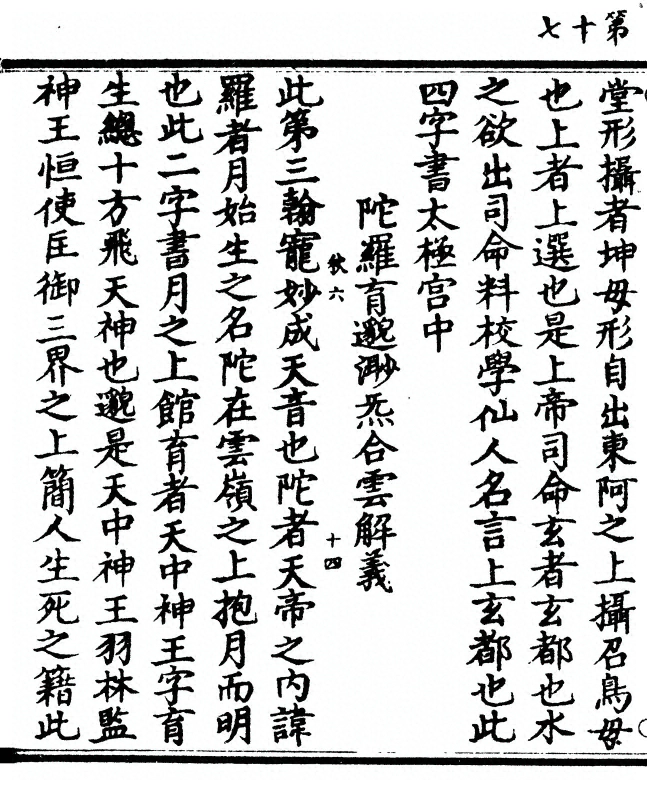 第十七
堂形攝者坤母形自出東阿之上攝召鳥母
也上者上選也是上帝司命玄者玄都也水
之欲出司命料校學仙人名言上玄都也此
四字書太極宫中
陀羅育邈渺炁合雲解義
此第三翰寵妙成天音也陀者天帝之内諱
羅者月始生之名陀在雲嶺之上抱月而明
也此二字書月之上館育者天中神王字育
生總十方飛天神也邈是天中神王羽林監
神王恒使匡御三界之上簡人生死之籍此
狄六
十四